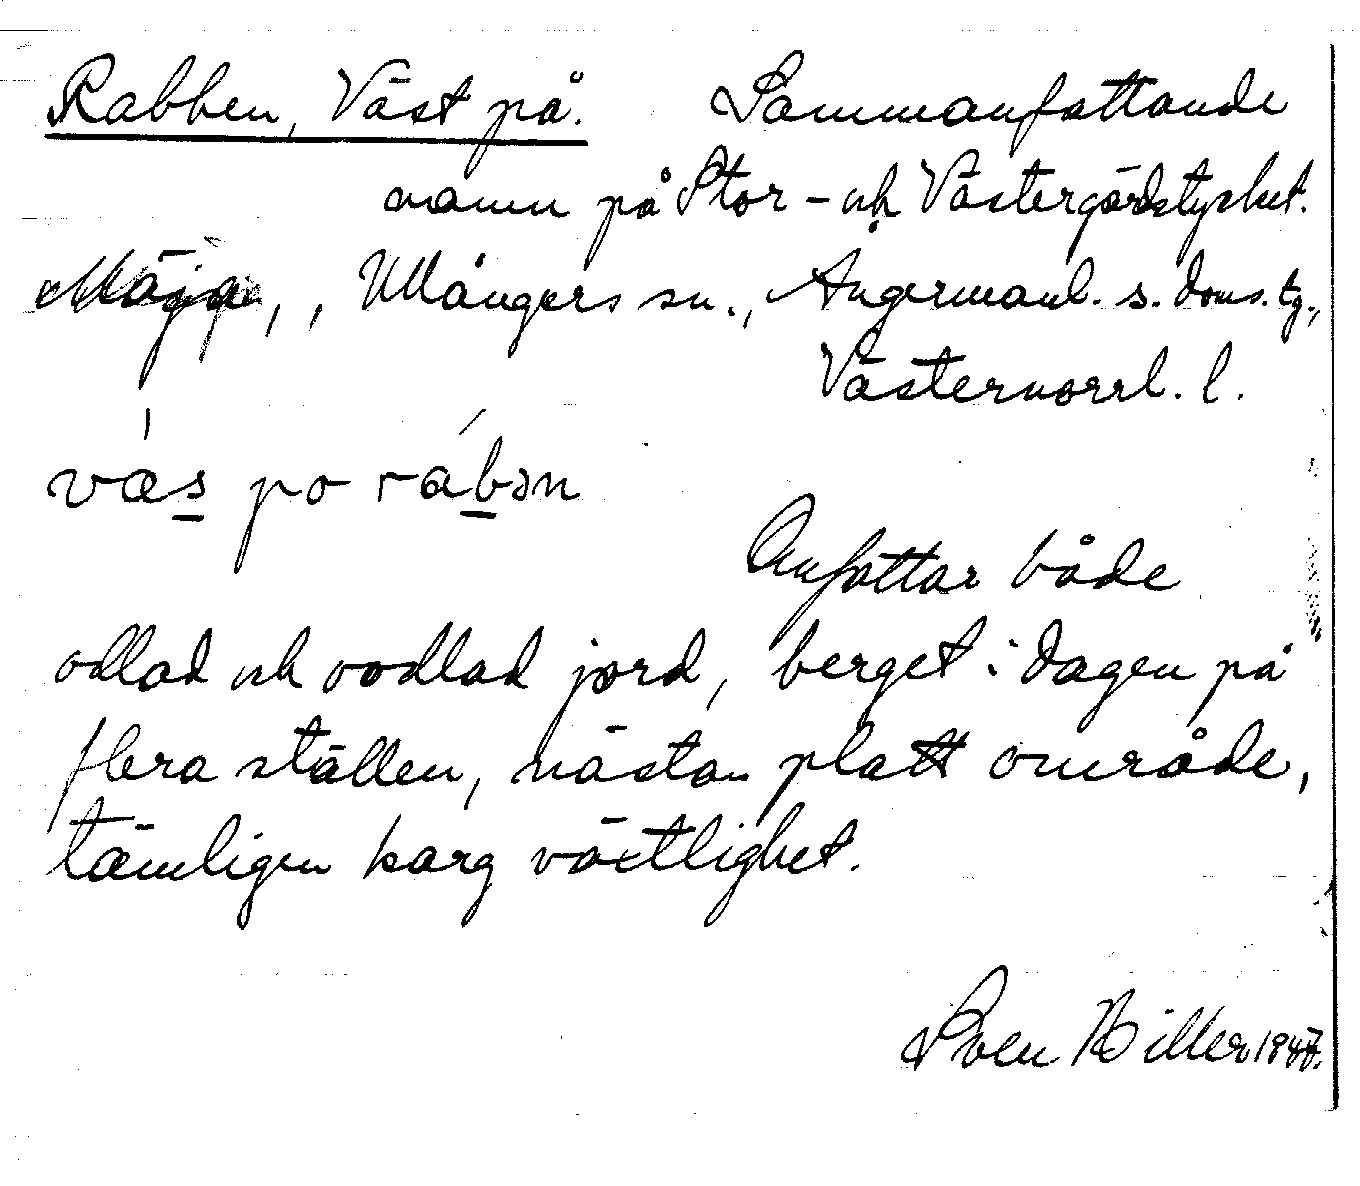 Rabben, Väst på. Sammanfattande
namn på Stor- och Västergärdstycket.
Mäjja, , Ullångers sn., Ångermanl. s. doms. tg.,
Västernorrl. l.
væs po rábən
Omfattar både
odlad och oodlad jord, berget i dagen på
flera ställen, nästan platt område,
tämligen karg växtlighet.
Sven Hiller 1947.